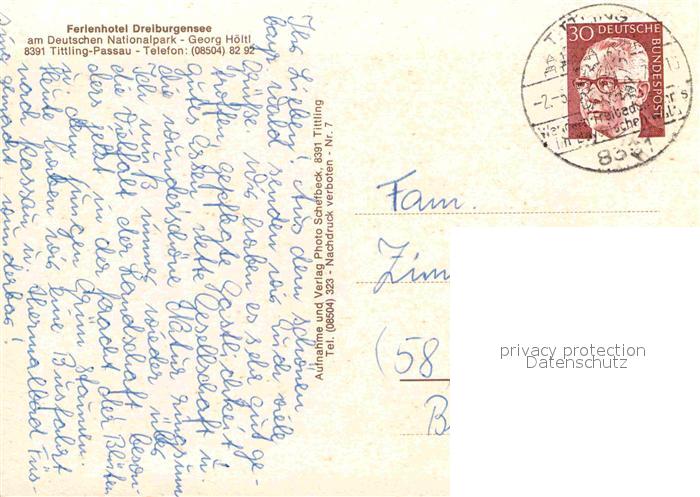 Ferienhotel Dreiburgensee
am Deutschen Nationalpark - Georg Höltl
8391 Tittling-Passau - Telefon: (08504) 82 92
Ihr Lieben! Aus dem schönen
bayr. Wald senden wir Euch viele
Grüße. Wir haben es sehr gut ge-
troffen, gepflegte Gastlichkeit,
gutes Essen, nette Gesellschaft u.
die wunderschöne Natur ringsum
Ich muß immer wieder über
die Vielfalt der Landschaft beson-
ders jetzt in der Pracht der Blüten
u. dem jungen Grün staunen.
Heute haben wir eine Busfahrt
nach Passau u. Thermalbad Füs-
sing gemacht, wunderbar!
Aufnahme und Verlag Photo Schefbeck, 8391 Tittling
Tel. (08504) 323 - Nachdruck verboten - Nr. 7
30 DEUTSCHE BUNDESPOST
TITTLING
8391
Fam.
Zim
(58
B
privacy protection
Datenschutz